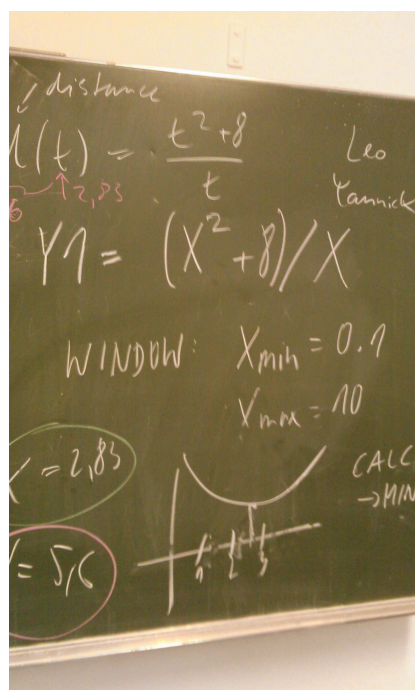 distance
(t) = t²+8 / t
Leo
Yannick
6 2,83
Y1 = (X²+8)/X
WINDOW: Xmin = 0.1
Xmax = 10
X = 2,83
CALC
→MIN
= 5,6
1 2 3